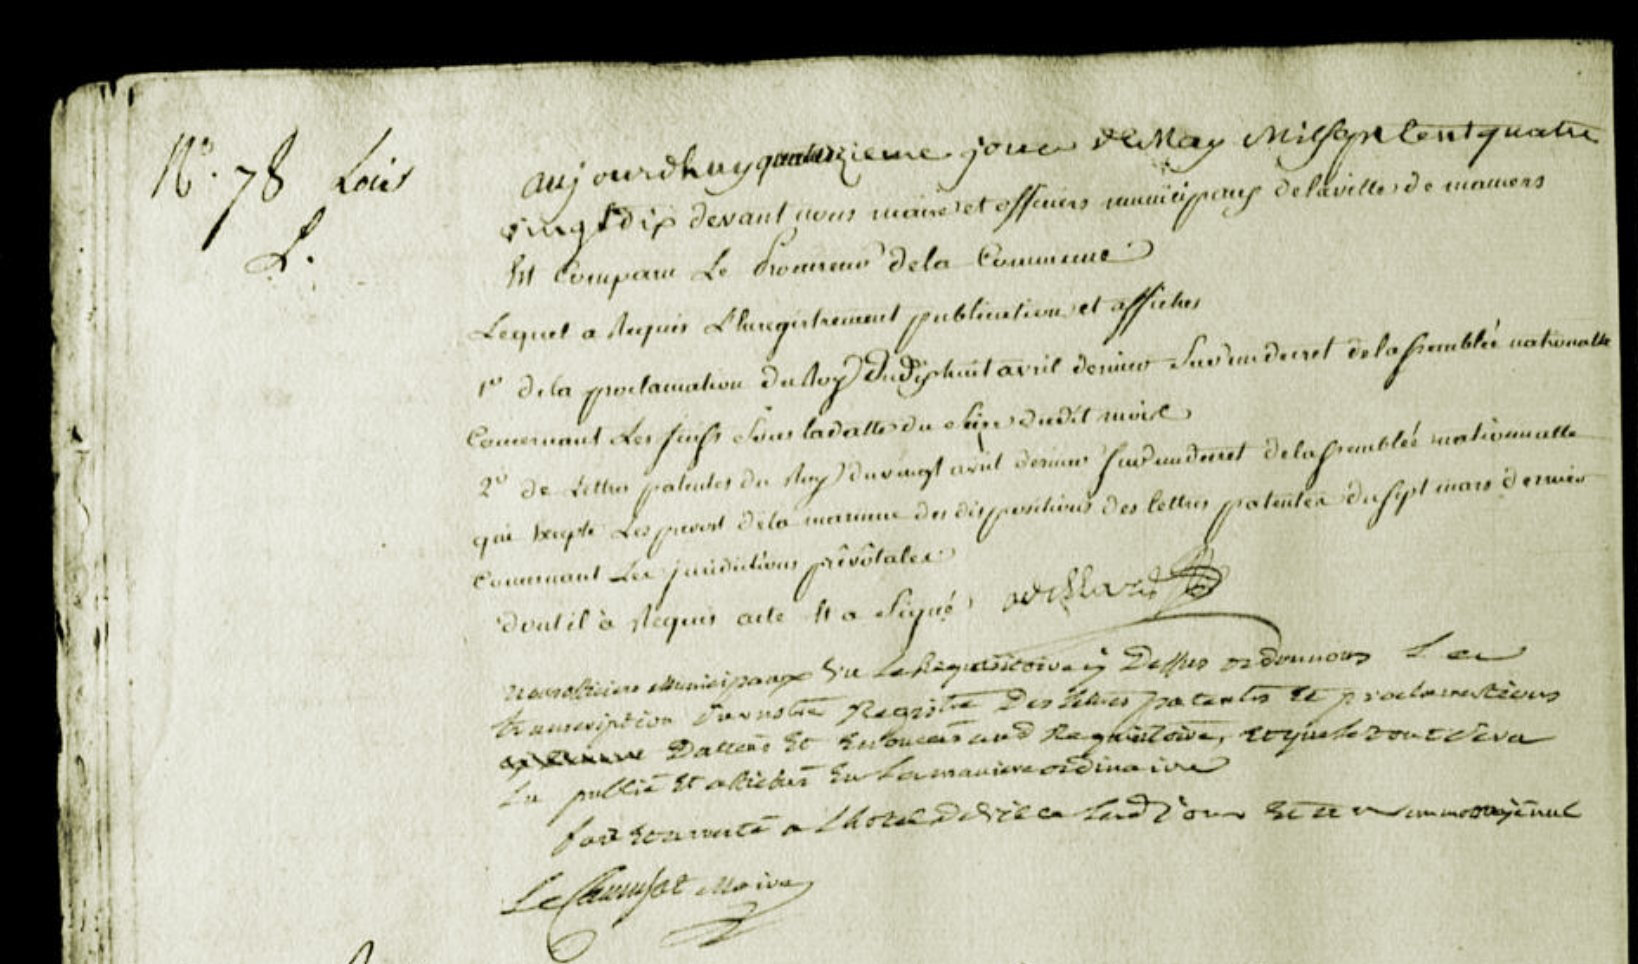 N°. 78 Loix
L.
aujourdhuy quatorzieme jour de May Mil Sept Cent quatre
vingt dix devant nous maire et officiers municipaux de la ville de mamers
Est Comparu Le Procureur de la Commune
Lequel a Requis L'Enregistrement publication et affiches
1° de la proclamation du Roy du Dixhuit avril dernier Sur un decret de la ssemblée nationalle
Concernant Les Sous la datte du dudit mois
2° de Lettres patentes du Roy du vingt avril dernier Sur un decret de la ssemblée nationnalle
qui Excepte Les prevost de la marinne des dispositions des lettres patentes du Sept mars dernier
Concernant Les juridictions prévôtales
dont il à Requis acte Et a Signé
nous officiers Municipaux Vu Le Requisitoire cy Dessus ordonnons La
transcription Sur notre Registre Des lettres patentes Et proclamations
Dattées Et Enoncées aud Requisitoire, Lequel tout Sera
Lu publié Et affiché En La maniere ordinaire
fait Et arreté a Lhotel De Ville Led Jour Et an
Le Maire